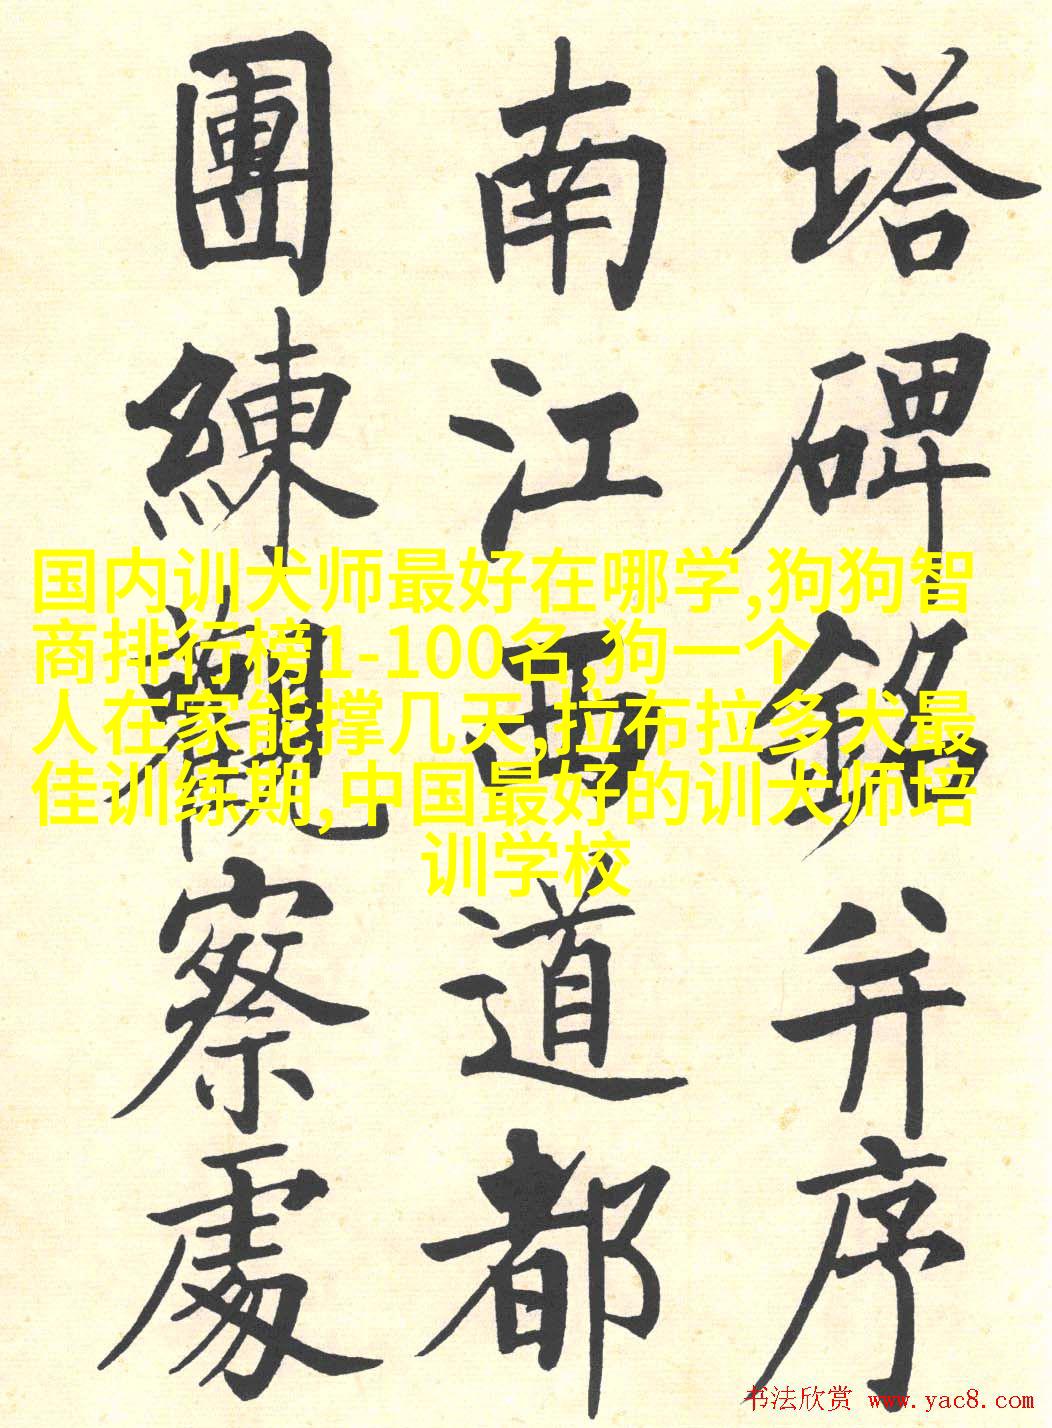 塔碑銘并序
南江西道都
團練觀察處
国内训犬师最好在哪学,狗狗智
商排行榜1-100名,狗一个
人在家能撑几天,拉布拉多犬最
佳训练期,中国最好的训犬师培
训学校
书法欣赏 www.yac8.com